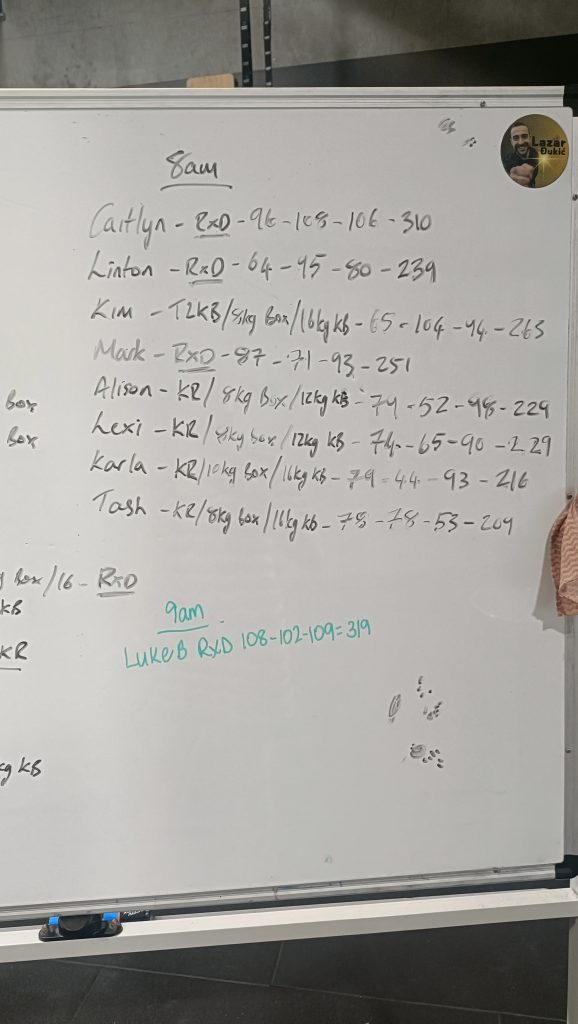 Lazar
Đukić
8am
Caitlyn - RxD - 96 - 108 - 106 - 310
Linton - RxD - 64 - 95 - 80 - 239
Kim - T2KB/8kg Box/16kg kB - 65 - 104 - 94 - 263
Mark - RxD - 87 - 71 - 93 - 251
Alison - KR/8kg Box/12kg kB - 79 - 52 - 98 - 229
Lexi - KR/8kg box/12kg kB - 74 - 65 - 90 - 229
Karla - KR/10kg Box/16kg kB - 79 - 44 - 93 - 216
Tash - KR/8kg box/16kg kb - 78 - 78 - 53 - 209
box
Box
Box/16 - RxD
kB
KR
kg kB
9am
Luke B RxD 108-102-109=319